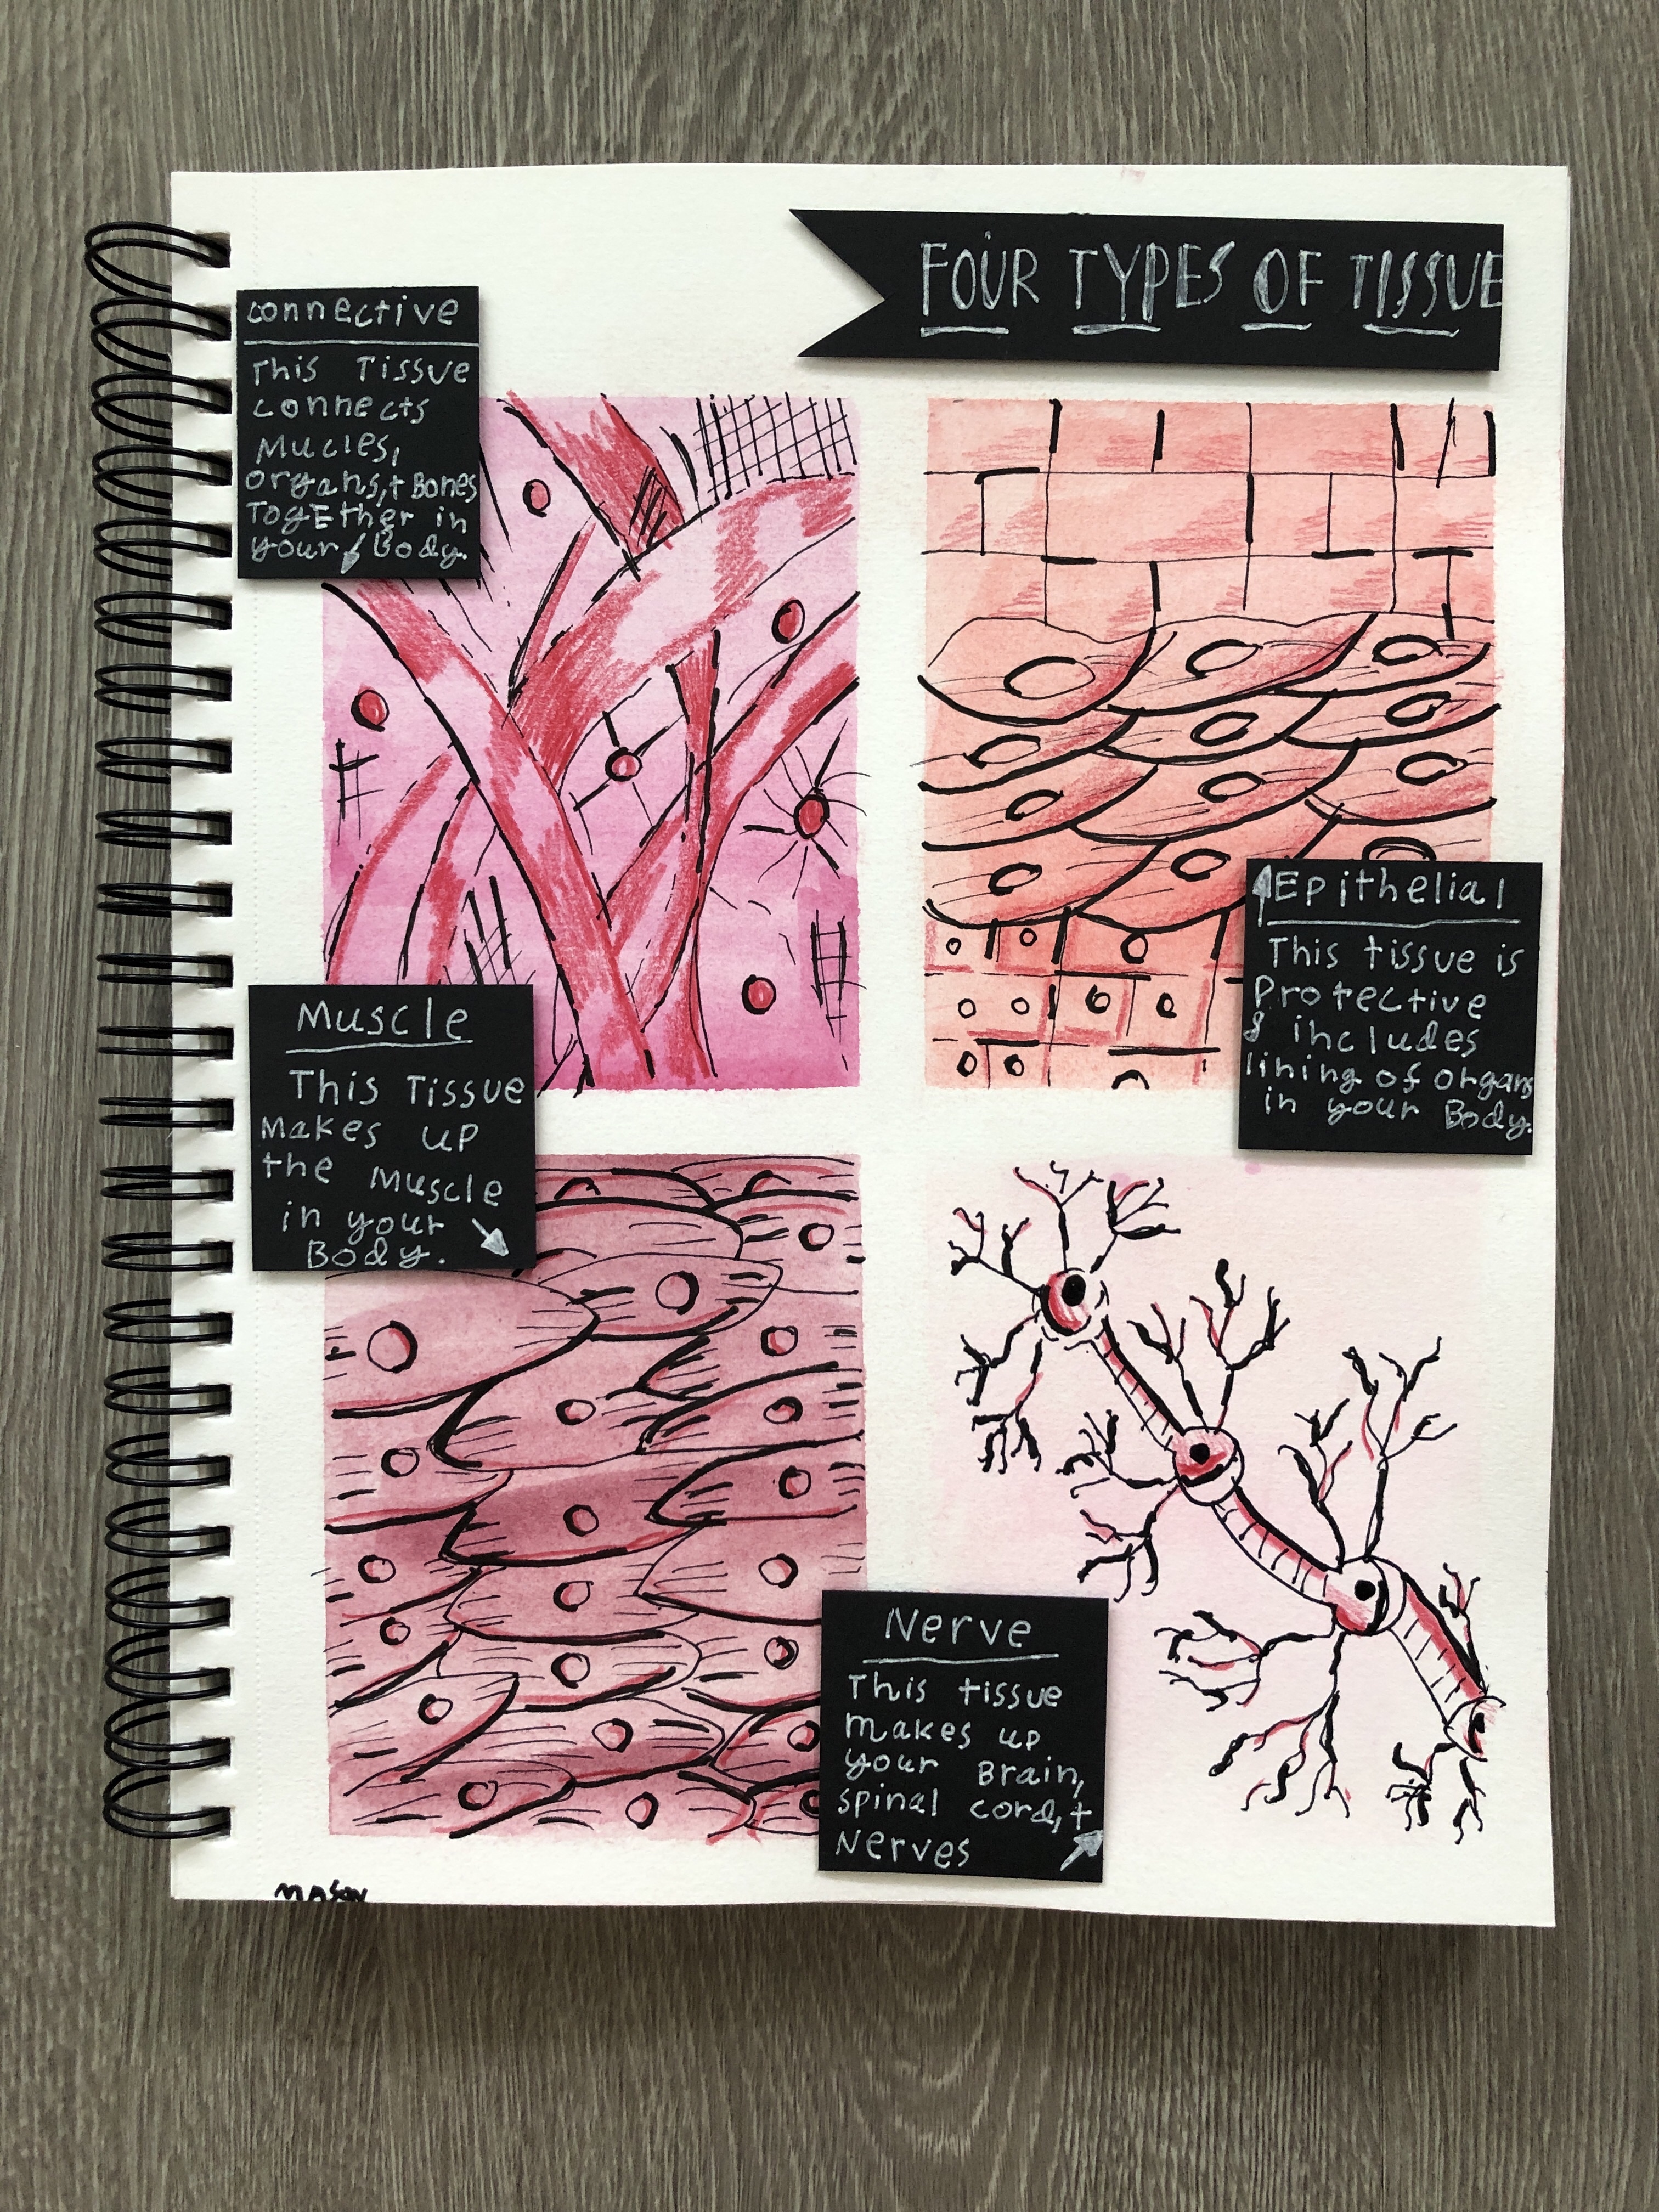 FOUR TYPES OF TISSUE
connective
This Tissue
connects
Mucles,
organs,+ Bones
TogEther in
your Body.
Epithelial
This tissue is
Protective
& includes
lining of organs
in your Body.
Muscle
This Tissue
Makes up
the Muscle
in your
Body.
Nerve
This tissue
makes up
your Brain,
spinal cord,+
Nerves
MASON